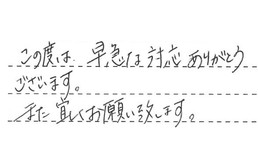 この度は、早急な対応ありがとう
ございます。
また宜しくお願い致します。